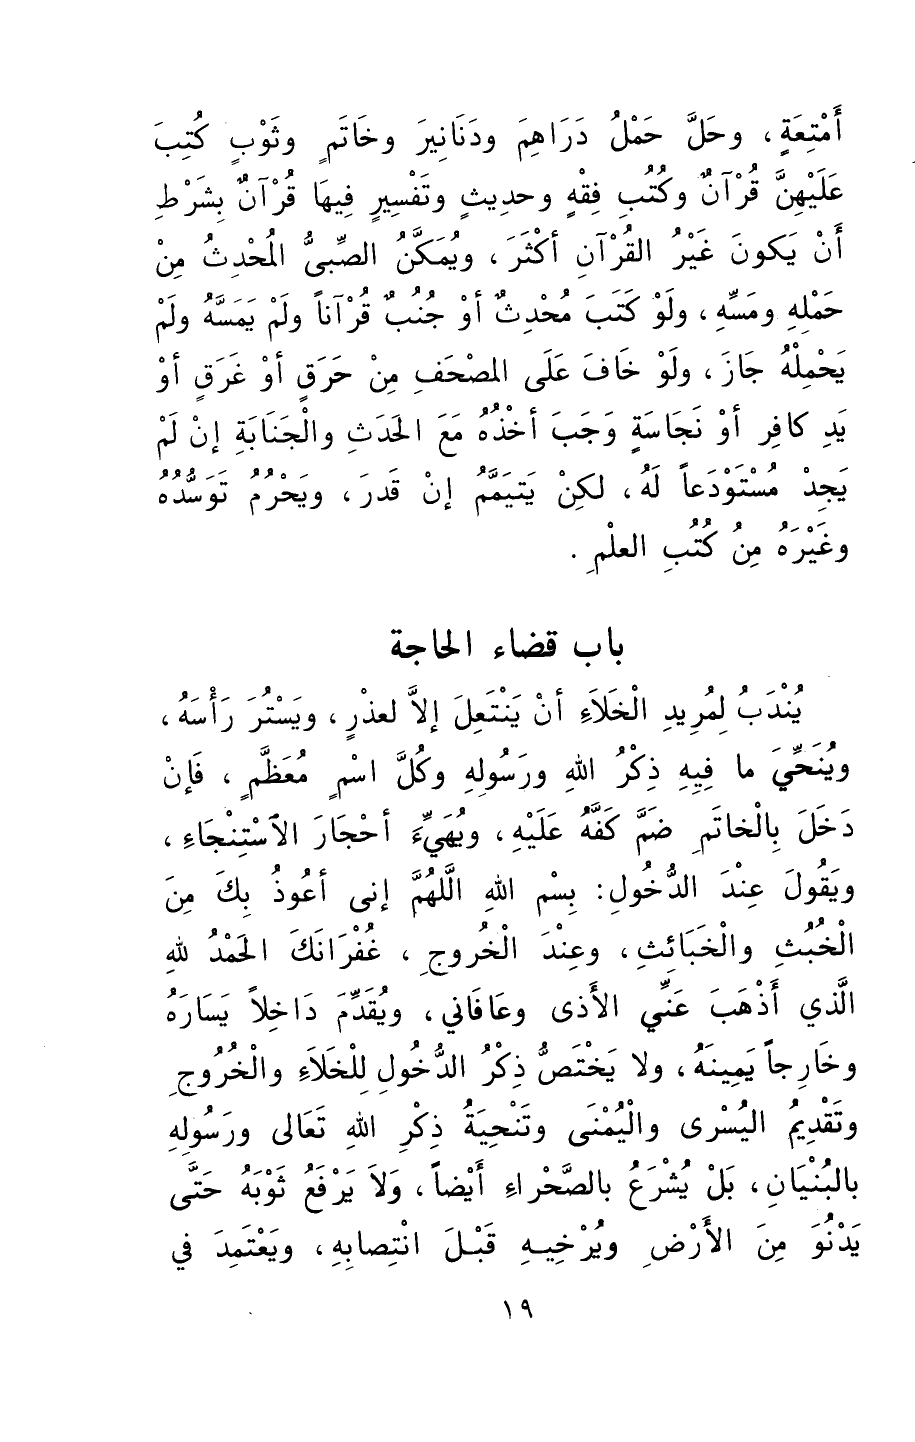 أَمْتِعَةٍ ، وحَلَّ حَمْلُ دَرَاهِمَ ودَنَانِيرَ وخَاتَمٍ وثَوْبٍ كُتِبَ
عَلَيْهِنَّ قُرْآنٌ وكُتُبِ فِقْهٍ وحديثٍ وتَفْسِيرٍ فِيهَا قُرْآنٌ بِشَرْطِ
أَنْ يَكونَ غَيْرُ القُرْآنِ أكْثَرَ ، ويُمَكَّنُ الصِّبىُّ المُحْدِثُ مِنْ
حَمْلِهِ ومَسِّهِ ، ولَوْ كَتَبَ مُحْدِثٌ أوْ جُنُبٌ قُرْآناً ولَمْ يَمَسَّهُ ولَمْ
يَحْمِلْهُ جَازَ ، ولَوْ خَافَ عَلَى المصْحَفِ مِنْ حَرَقٍ أوْ غَرَقٍ أوْ
يَدِ كافِرٍ أوْ نَجَاسَةٍ وَجَبَ أخْذُهُ مَعَ الحَدَثِ والْجَنَابَةِ إنْ لَمْ
يَجِدْ مُسْتَوْدَعاً لَهُ ، لكِنْ يَتيَمَّمُ إنْ قَدرَ ، ويَحْرُمُ تَوَسُّدُهُ
وغَيْرَهُ مِنُ كُتُبِ العلْمِ .
باب قضاء الحاجة
يُنْدَبُ لِمُرِيدِ الْخَلَاَءِ أنْ يَنْتَعِلَ إلاَّ لعذْرٍ ، ويَسْتُرَ رَأْسَهُ ،
ويُنَحِّيَ ما فِيهِ ذِكْرُ اللهِ ورَسُولِهِ وكُلَّ اسْمٍ مُعَظَّمٍ ، فَإنْ
دَخَلَ بِالْخاتَمِ ضَمَّ كَفَّهُ عَلَيْهِ ، ويُهَيِّءَ أحْجَارَ الاَسْتِنْجَاءِ ،
ويَقُولَ عِنْدَ الدُّخُولِ : بِسْمِ اللهِ الَّلهُمَّ إنى أعُوذُ بِكَ مِنَ
الْخُبُثِ والْخَبَائِثِ ، وعِنْدَ الْخُروجِ ، غُفْرَانَكَ الحَمْدُ للهِ
الَّذي أَذْهَبَ عَنِّي الأَذى وعَافَاني ، ويُقَدِّمَ دَاخِلاً يَسَارَهُ
وخَارِجاً يَمِينَهُ ، ولا يَخْتَصُّ ذِكْرُ الدُّخُولِ لِلْخَلَاَءِ والْخُرُوجِ
وتَقْدِيمُ اليُسْرى والْيُمْنَى وتَنْحِيَةُ ذِكْرِ اللهِ تَعَالى ورَسُولِهِ
بالبُنْيَانِ ، بَلْ يُشْرَعُ بالصَّحْراءِ أَيْضاً ، وَلاَ يَرْفَعُ ثَوْبَهُ حَتَّى
يَدْنُوَ مِنَ الأَرْضِ ويُرْخِيهِ قَبْلَ انْتِصابِهِ ، ويَعْتَمِدَ في
١٩